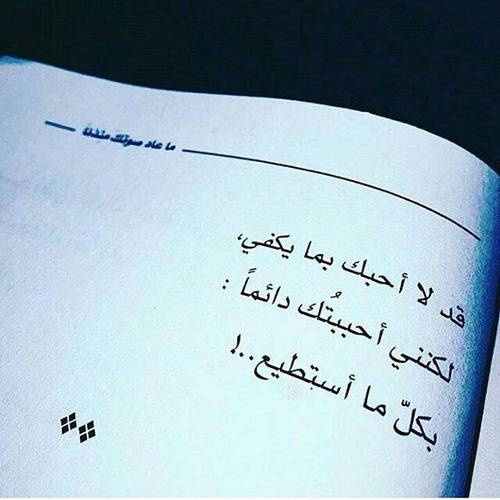 ما عاد صوتك منقذنا
قد لا أحبك بما يكفي،
لكنني أحببتُك دائماً :
بكلّ ما أستطيع..!